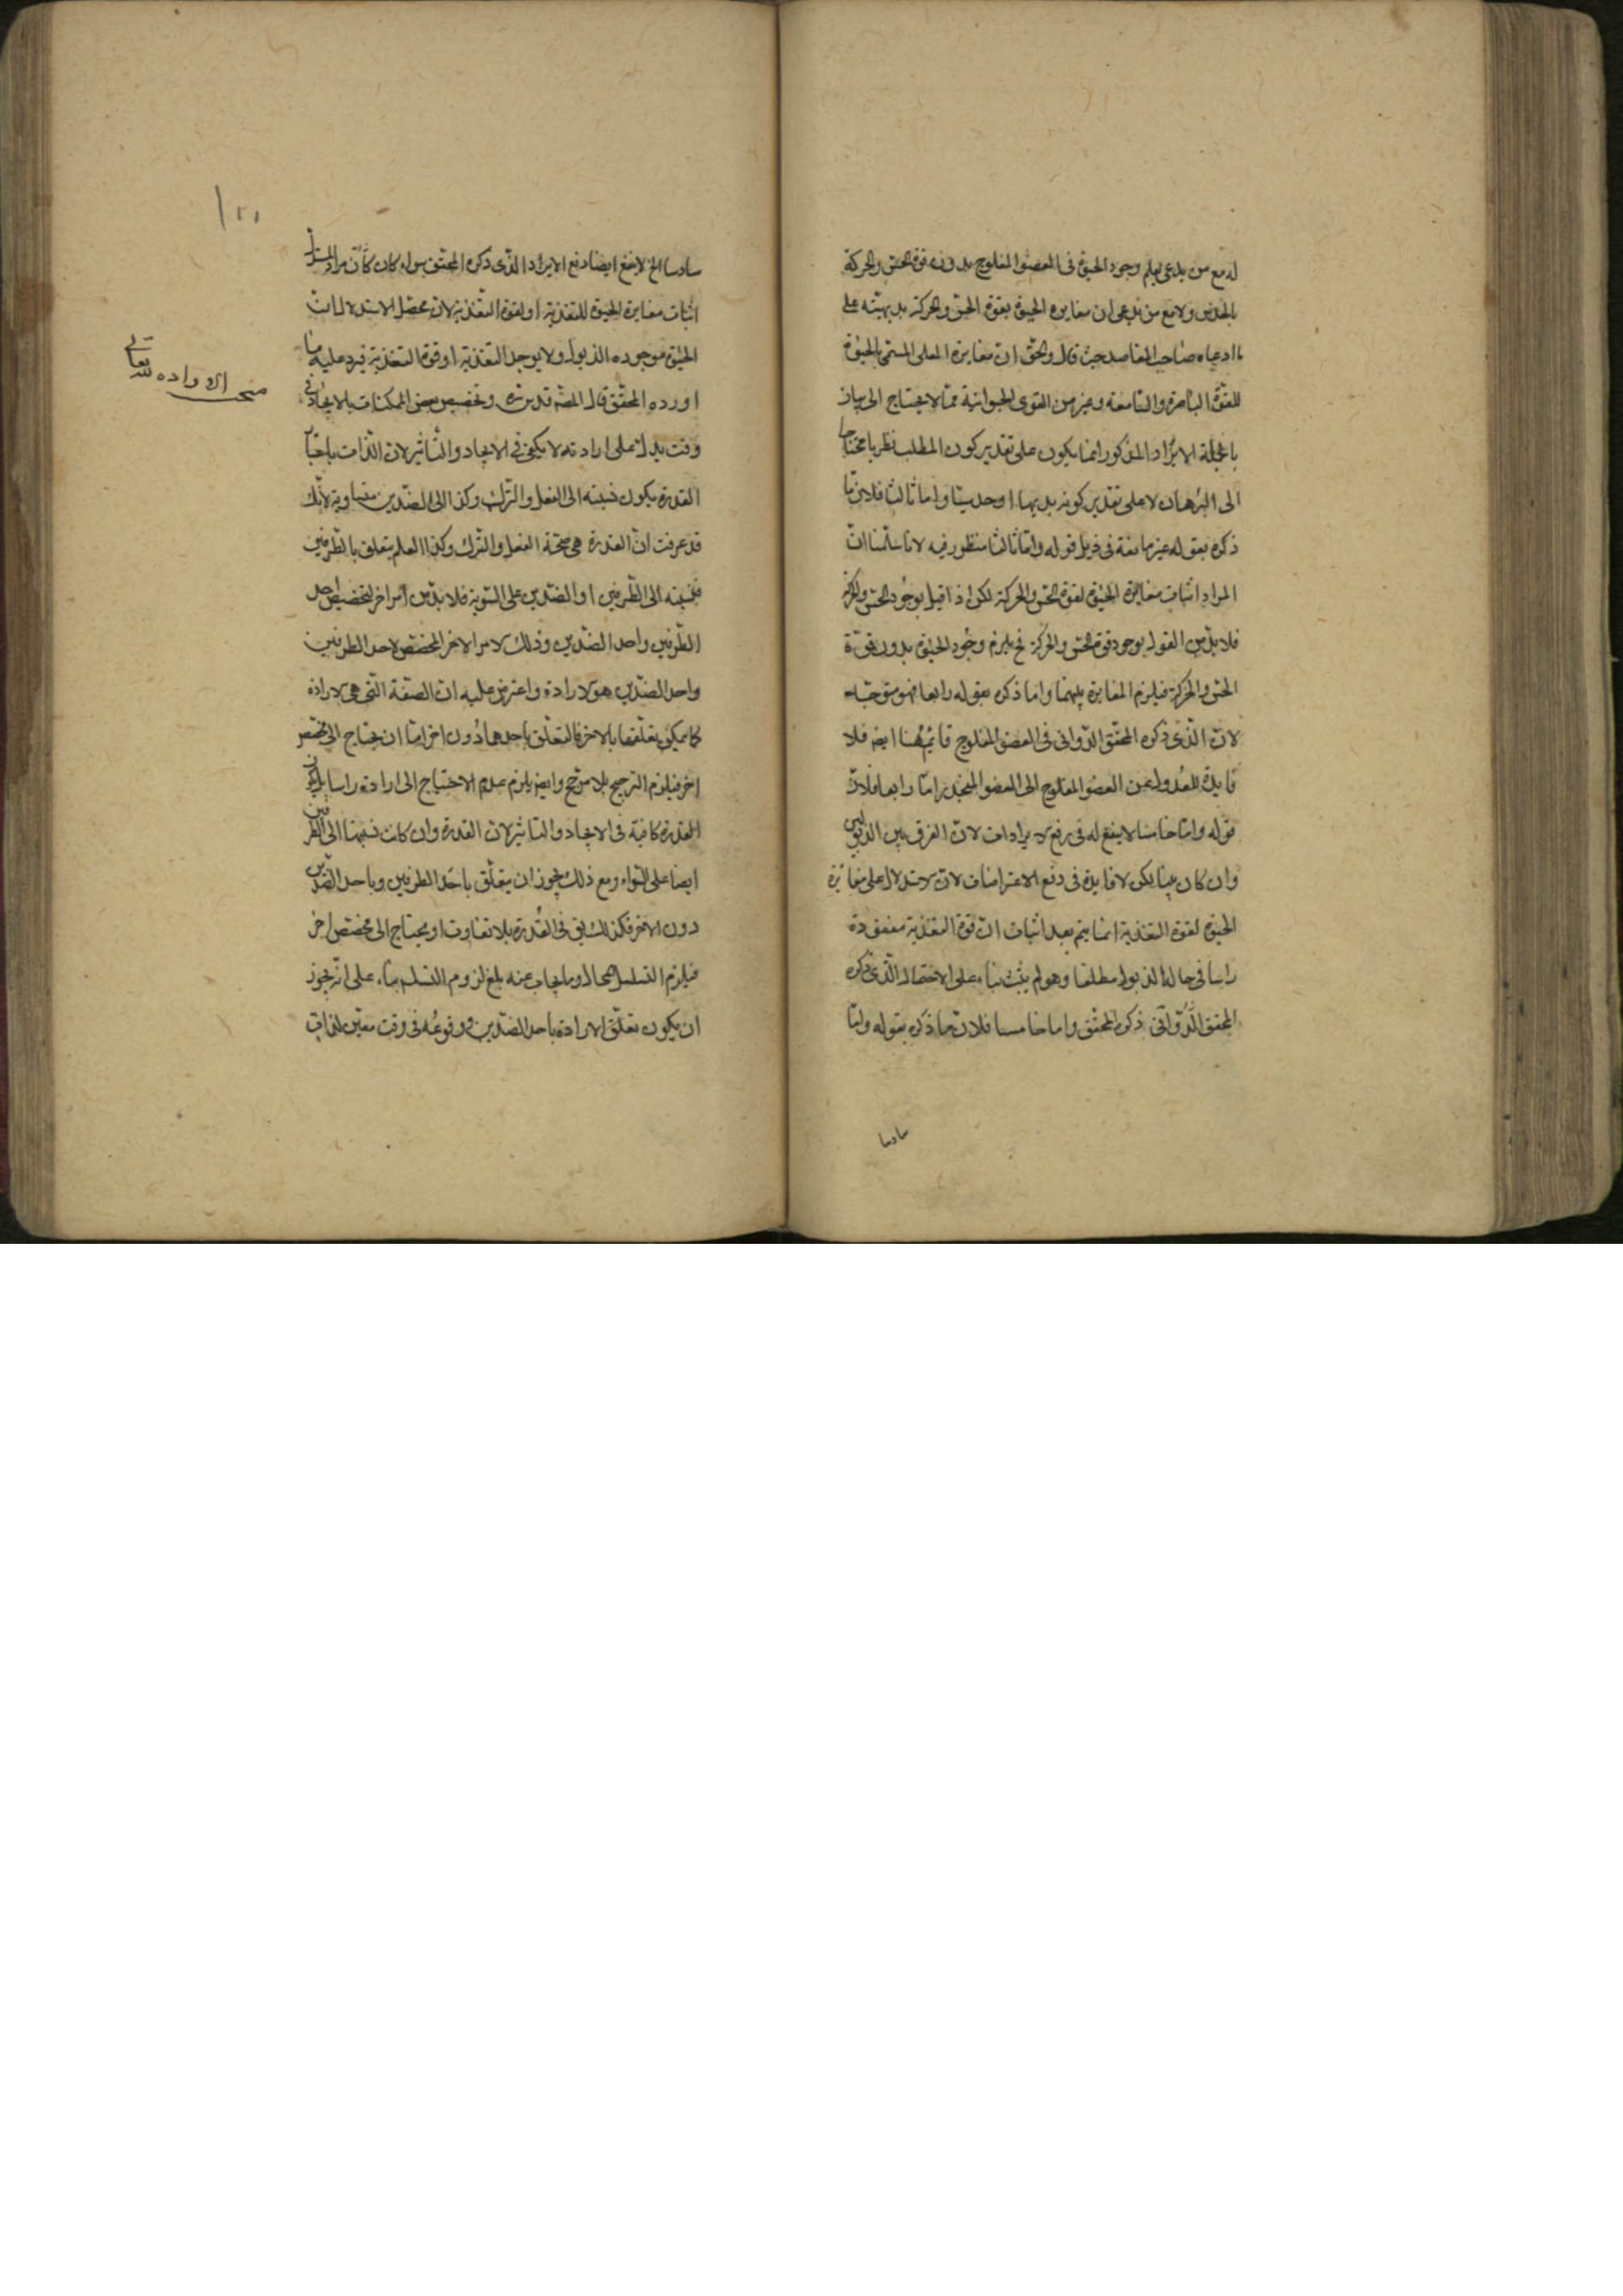 له مع من يدعى يعلم وجود الحيوة فى العضو المفلوج بدون قوة الحس والحركة
بالحدس ولا مع من يدعى ان مغايرة الحيوة بقوة الحس والحركة بديهية على
ما ادعاه صاحب المقاصد حيث قال والحق ان مغايرة المعنى المسمى بالحيوة
للقوة الباصرة والسامعة وغير من القوى الحيوانية مما لا يحتاج الى بيان
بالجملة الايراد المذكور انما يكون على تقدير كون المطلب نظريا محتاجا
الى البرهان لا على تقدير كونه بديهيا او حدسيا واما ثالثا فلان ما
ذكره بقوله غير مانعة فى ذيل قوله واما ثالثا منظور فيه لانا سلمنا ان
المراد اثبات مغايرة الحيوة لقوة الحس والحركة لكن اذا قيل بوجود الحس والحركة
فلا بد من القول بوجود قوة الحس والحركة فح يلزم وجود الحيوة بدون قوة
الحس والحركة فيلزم المغايرة بينهما واما ذكره بقوله رابعا فهو متوجه
لان الذى ذكره المحقق الدوانى فى العضو المفلوج قائم ههنا ايضا فلا
فايدة للعدول عن العضو المفلوج الى العضو المتخدر واما رابعا فلان
قوله واما خامسا لا ينفع له فى رفع الايرادات لان الفرق بين الذبولين
وان كان بينا لكن لا فايدة فى دفع الاعتراضات لان الاستدلال على مغايرة
الحيوة لقوة التغذية انما يتم بعد اثبات ان قوة التغذية مفقودة
راسا فى حالة الذبول مطلقا وهو لم يثبت بناء على الاحتمال الذى ذكره
المحقق الدوانى ذكره المحقق واما خامسا فلان ما ذكره بقوله واما
سادسا
سادسا الخ لا ينفع ايضا دفع الايراد الذى ذكره المحقق سواء كان كان مراد المستدل
اثبات مغايرة الحيوة للتغذية او لقوة التغذية لان محصل الاستدلال ان
الحيوة موجوده الذبول ولا يوجد التغذية او قوة التغذية فيرد عليه ما
اورده المحقق قال المصنف قدس سره وتخصيص بعض الممكنات بالايجاد فى
وقت يدل على ارادته لا يكفى فى الايجاد والتاثير لان الذات باعتبار
القدرة يكون نسبته الى الفعل والترك وكذا الى الضدين متساوية لانك
قد عرفت ان القدرة هى صحة الفعل والترك وكذا العلم يتعلق بالطرفين
فنسبته الى الطرفين او الضدين على السوية فلا بد من امر اخر لتخصيص احد
الطرفين واحد الضدين وذلك الامر الاخر المخصص لاحد الطرفين
واحد الضدين هو الارادة واعترض عليه ان الصفة التى هى الارادة
كما يمكن تعلقها بالاخر فالتعلق باحدهما دون اخر اما ان يحتاج الى مخصص
اخر فيلزم الترجيح بلا مرجح وايضا يلزم عدم الاحتياج الى ارادة راسا بل يكون
القدرة كافية فى الايجاد والتاثير لان القدرة وان كانت نسبتها الى الطرفين
ايضا على السواء ومع ذلك يجوز ان يتعلق باحد الطرفين وباحد الضدين
دون الاخر فكذلك يق فى القدرة بلا تفاوت او يحتاج الى مخصص اخر
فيلزم التسلسل المحال وما يجاب عنه بمنع لزوم التسلسل بناء على انه يجوز
ان يكون تعلق الارادة باحد الضدين ووقوعه فى وقت معين لذات
مبحث الاراده لله تعالى